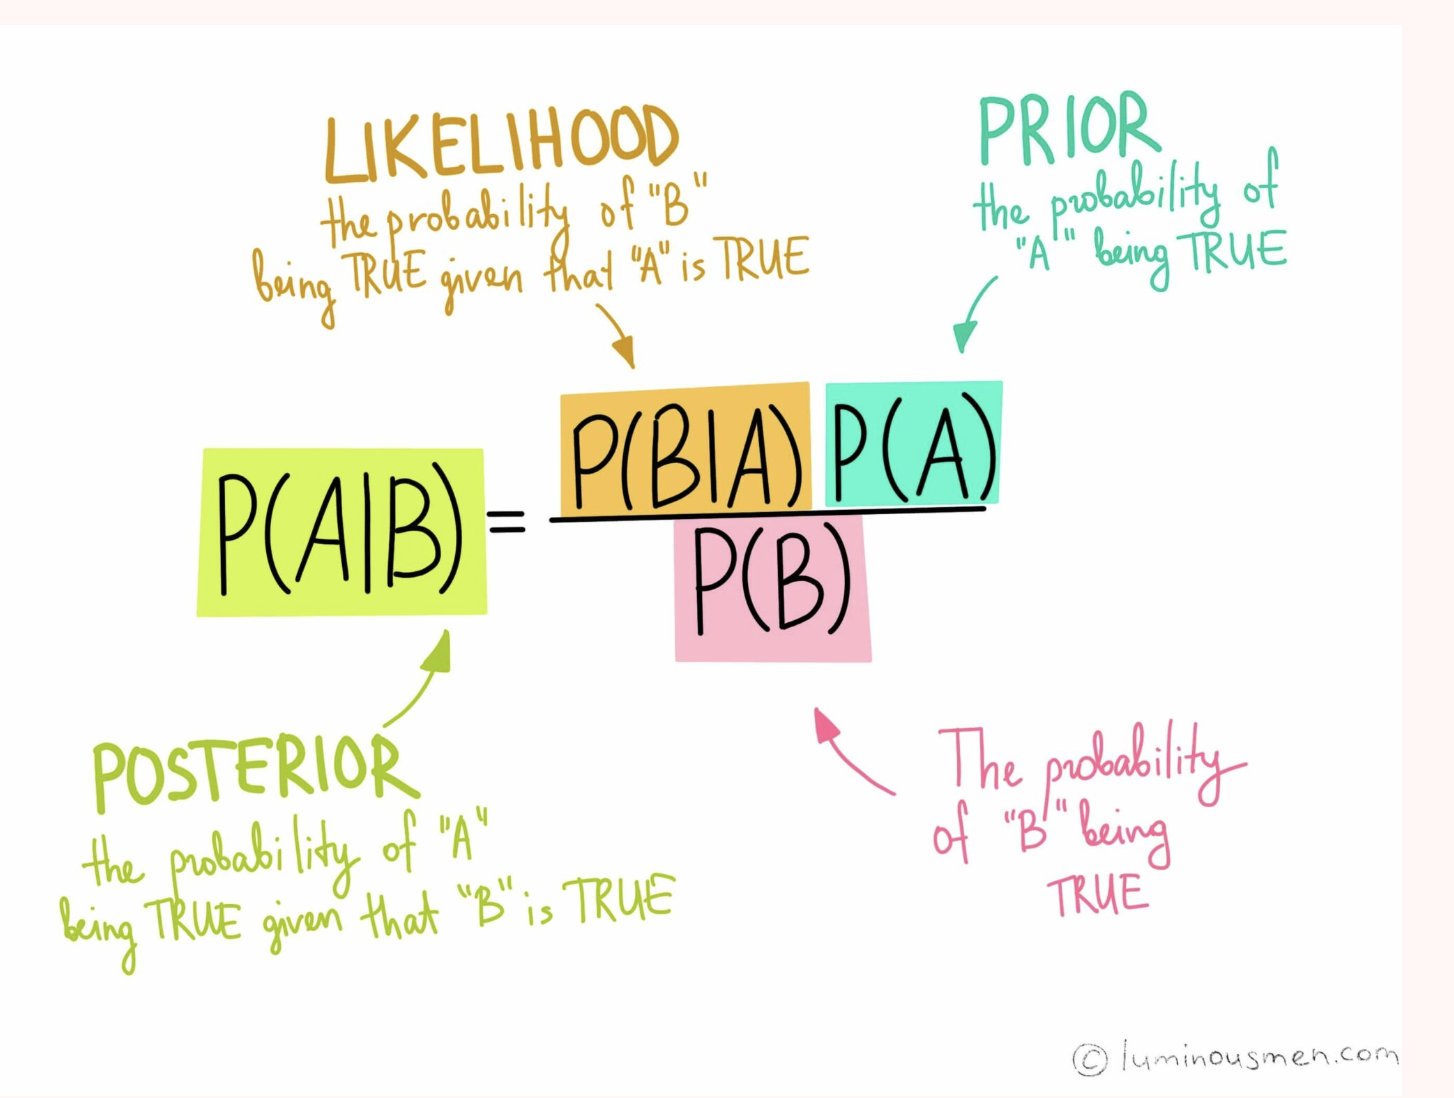 LIKELIHOOD
the probability of "B"
being TRUE given that "A" is TRUE
PRIOR
the probability of
"A" being TRUE
P(A|B) =
P(B|A) P(A)
P(B)
POSTERIOR
the probability of "A"
being TRUE given that "B" is TRUE
The probability
of "B" being
TRUE
© luminousmen.com